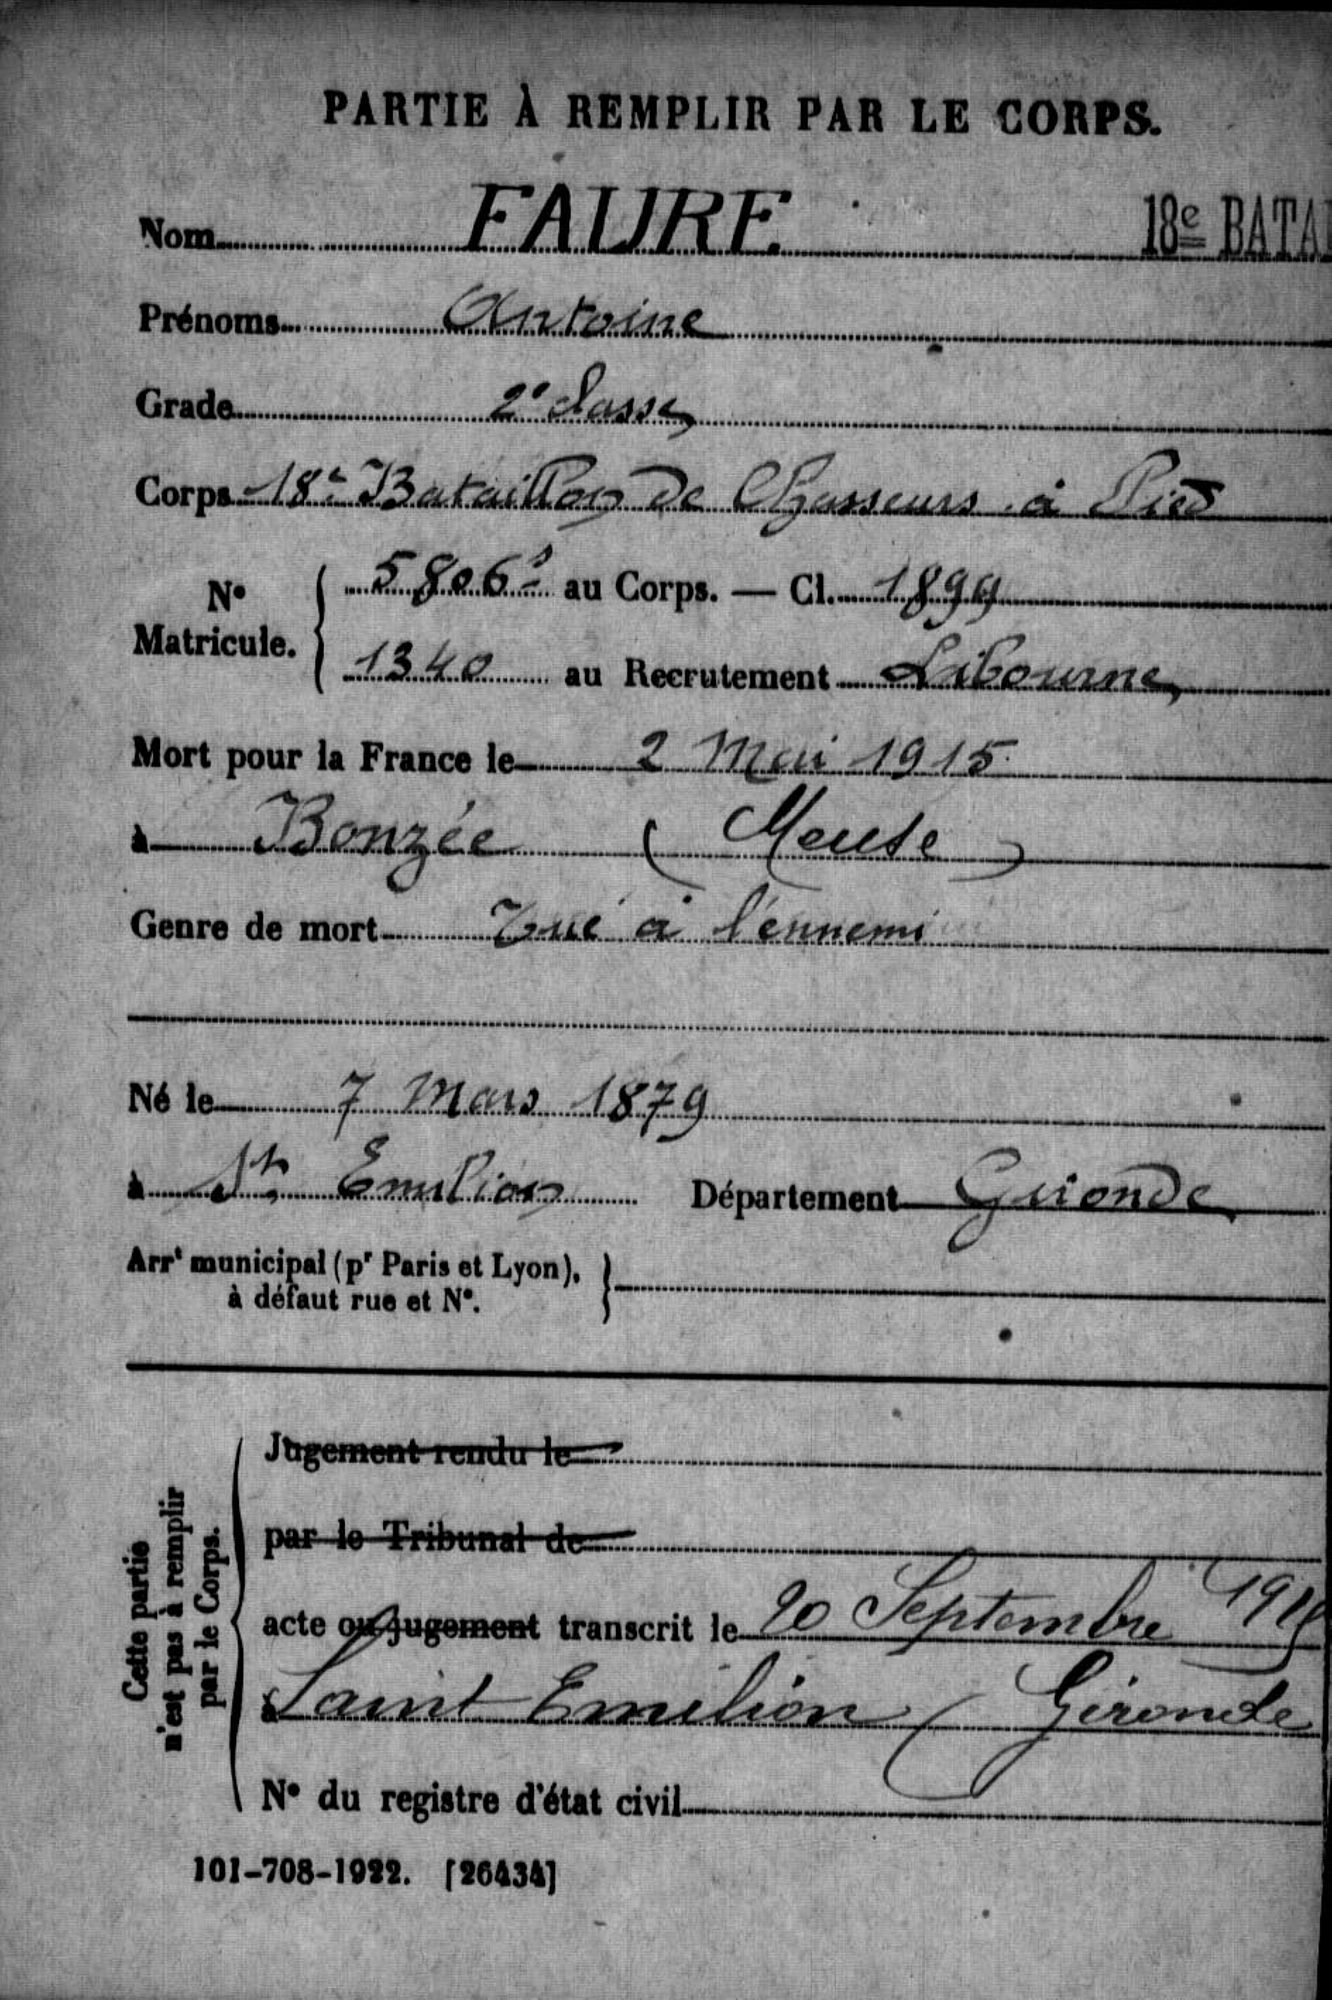 PARTIE À REMPLIR PAR LE CORPS.
Nom FAURE 18e BATAI
Prénoms Antoine
Grade 2e classe
Corps 18e Bataillon de Chasseurs à Pied
No Matricule. { 5806 au Corps. — Cl. 1899
1340 au Recrutement Libourne
Mort pour la France le 2 Mai 1915
à Bonzée (Meuse)
Genre de mort Tué à l'ennemi
Né le 7 Mars 1879
à St Emilion Département Gironde
Arrt municipal (pr Paris et Lyon), }
à défaut rue et No.
Cette partie
n'est pas à remplir
par le Corps.
Jugement rendu le
par le Tribunal de
acte ou jugement transcrit le 20 Septembre
à Saint Emilion (Gironde
No du registre d'état civil
101-708-1922. [26434]